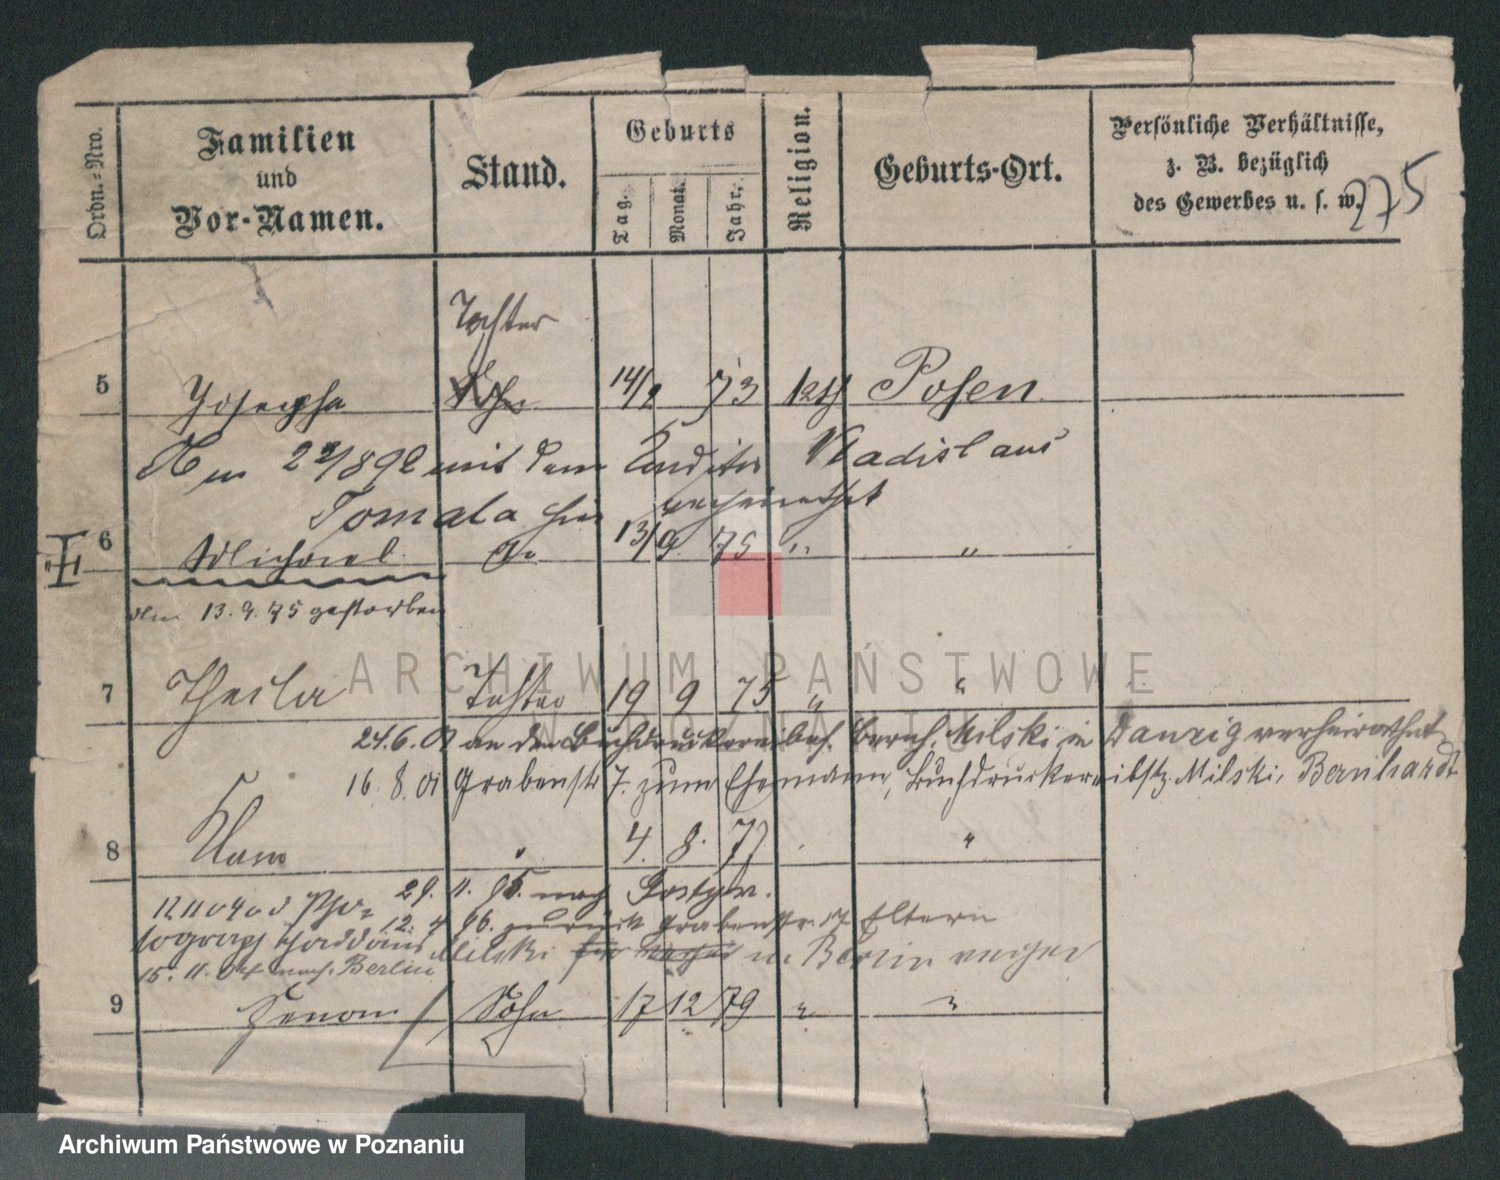 Ordn.=Nro.
Familien
und
Vor-Namen.
Stand.
Geburts
Tag.
Monat.
Jahr.
Religion.
Geburts-Ort.
Persönliche Verhältnisse,
z. B. bezüglich
des Gewerbes u. s. w.
Tochter
5 Josepha Sohn 14/2 73 kth Posen
Am 22/892 mit dem Konditor Vladislaus
Tomala hier verheirathet
6 Michael do 13/9 75 " "
Am 13.9.75 gestorben
7 Thecla Tochter 19 9 75 " "
24.6.01 an den Buchdruckereibes. Bernh. Milski in Danzig verheirathet
16.8.01 Grabenstr 7. zum Ehemann, Buchdruckereibstz. Milski, Bernhardt
8 Klara " 4. 8. 77 "
29. 11. 95. nach Gostyn.
Pho=
12. 4 96. zurück Grabenstr. 17 Eltern
tograph Thaddäus Milski in Berlin
15. 11. 04 nach Berlin
9 Zenon Sohn 17 12 79 " "
ARCHIWUM PAŃSTWOWE
W POZNANIU
Archiwum Państwowe w Poznaniu